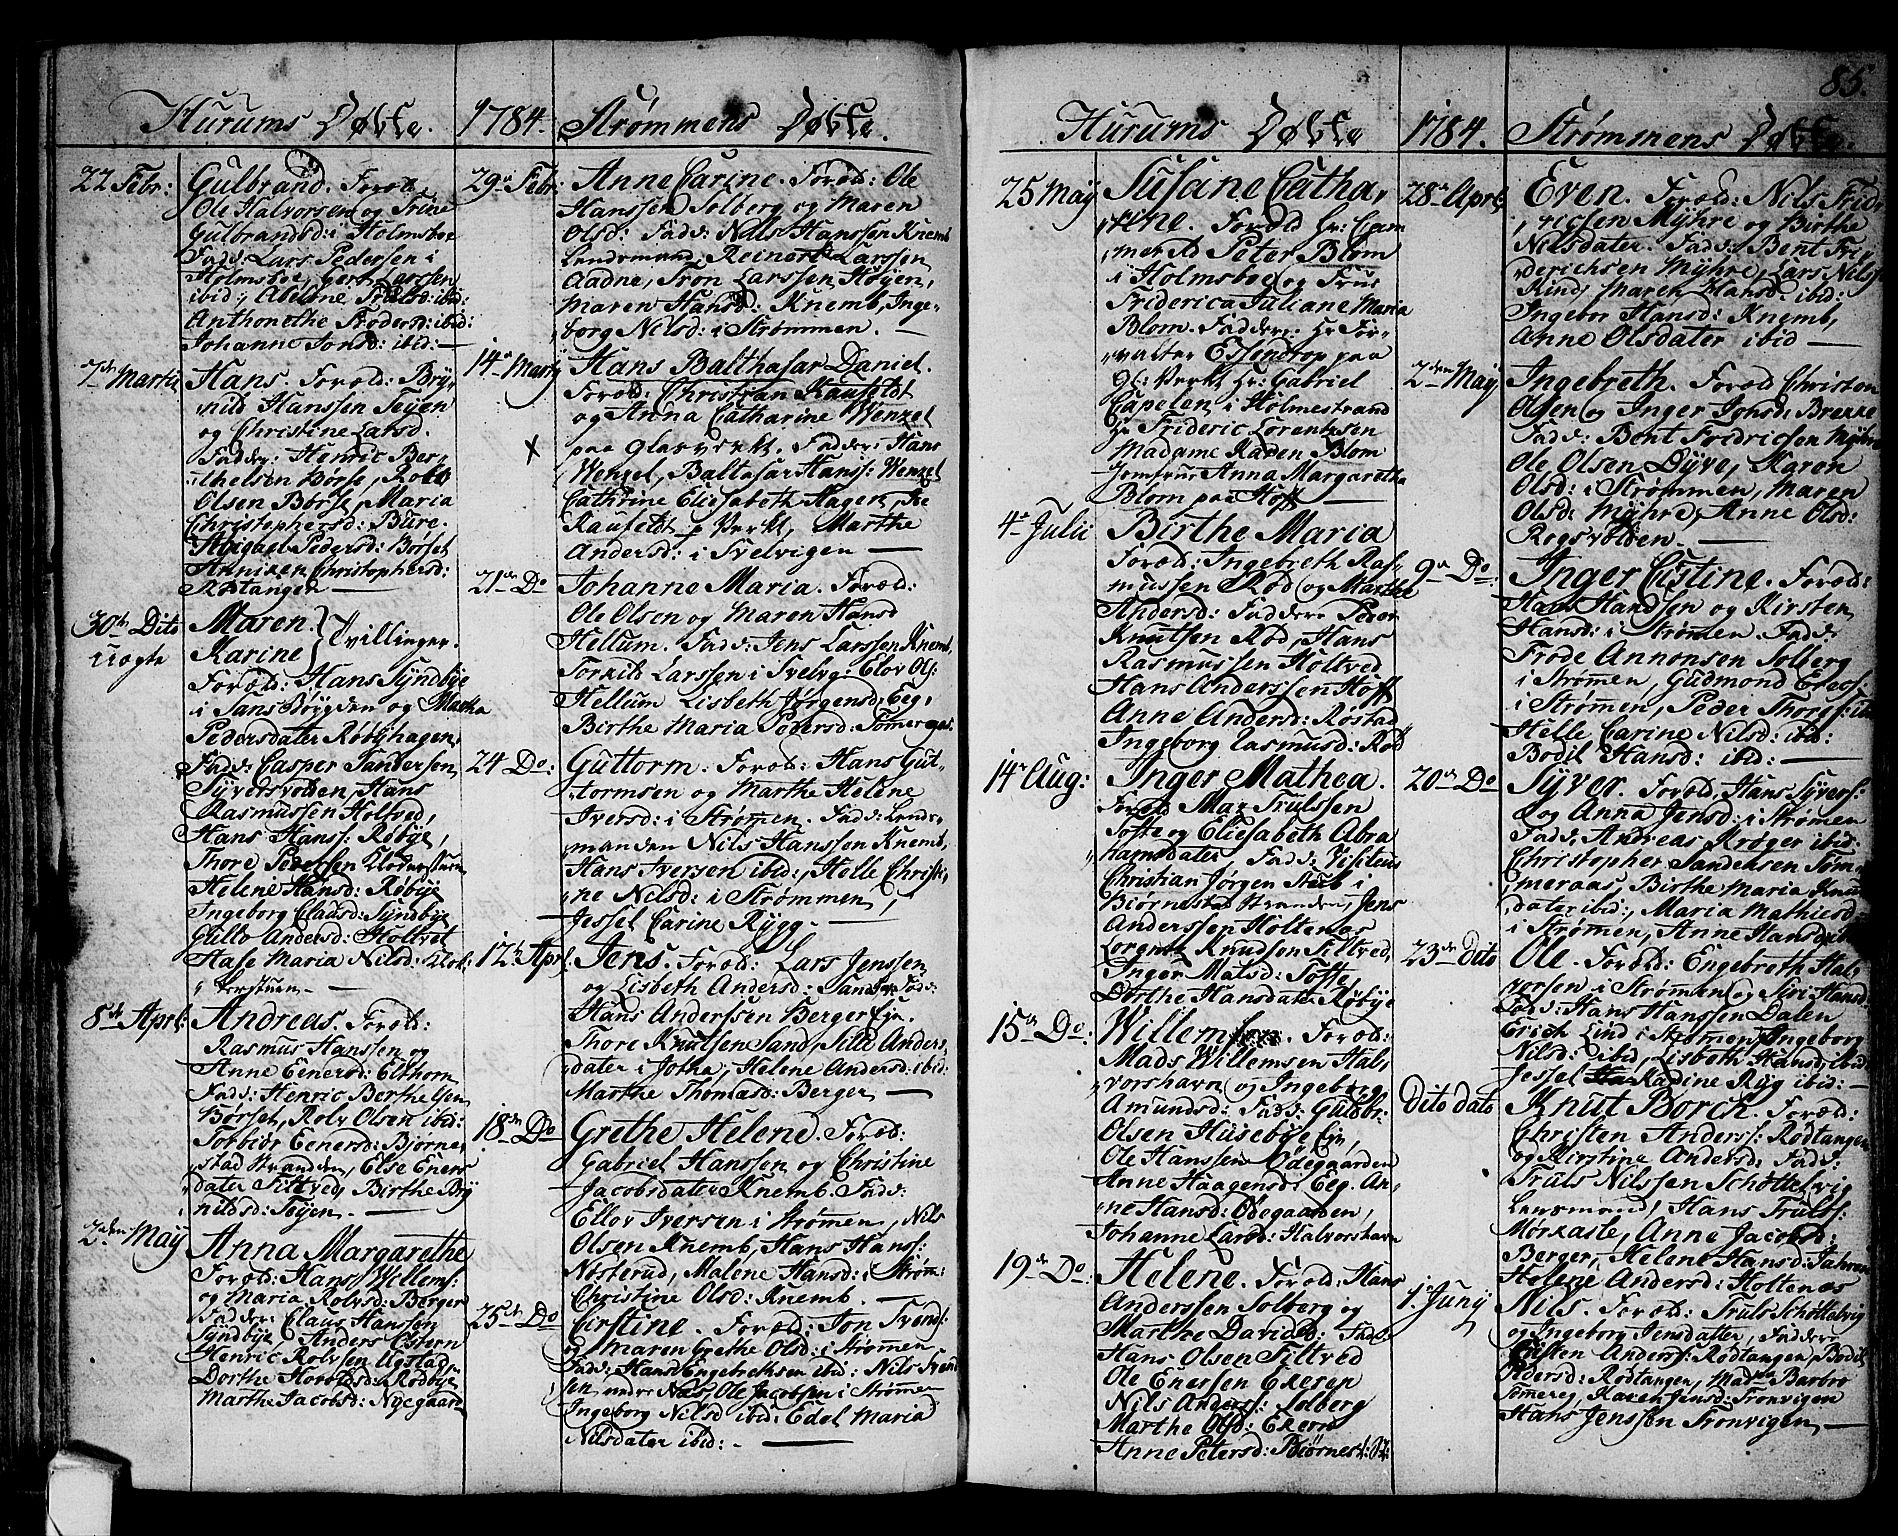 85.
Hurums Døbte. 1784. Strømmens Døbte.
22 Febr: Gulbrand. Foræld:
Ole Halvorsen og Trine
Gulbrandsd: i Holmsboe
Fadd: Lars Pedersen i
Holmsboe, Gert Larssen
ibid:, Abelone Trulsd: ibid:
Anthonethe Todersd: ibid:
Johanne Jonsd: ibid: —
7de Martii Hans. Foræld: Bry,
nild Hanssen Tøjen
og Christine Larsd.
Fadder: Henric Ber,
thelsen Børse, Rolv
Olsen Børse, Maria
Christophersd: Bure.
Abigael Pedersd: Børset
Anniken Christophersd:
Røstangen —
30te Dito Maren. } Tvillinger.
uægte Karine
Foræld: Hans Syndbye
i Sans Bøygden og Martha
Pedersdater Røbyhagen,
Fadd: Casper Sandersen
Syversvolden, Hans
Rasmussen Holtved,
Hans Hanss: Røbye,
Thore Pedersen Klokkerstuen
Helene Hansd: Røbye
Ingeborg Clausd: Syndbye
Gullo Andersd: Holtvet
Hase Maria Nilsd: Klok:
kerstuen —
8de April: Andreas. Foræld:
Rasmus Hanssen og
Anne Enersd: Elthorn
Fadd: Henric Berthelsen
Børset, Rolv Olsen ibid:
Torbiør Enersd: Bjørne,
stad Stranden, Else Eners
dater Filtved, Birthe Bry
nildsd: Tøjen. —
2den May Anna Margarethe
Foræld: Hans Willems:
og Maria Rolvsd: Berger
Fadder: Claus Hanssen
Syndbye, Anders Estern
Henric Rolvsen Agstad
Dorthe Hovelsd: Rødbye
Marthe Jacobsd: Nyegaard
29de Febr: Anne Carine. Foræld: Ole
Hanssen Solberg og Maren
Olsd: Fadd: Nils Hanssen Knemb
Lendsmand, Reinert Larssen
Aadne, Tron Larssen Høyen,
Maren Hansd: Knemb, Inge-
borg Nilsd: i Strømmen. —
14de Martij Hans Balthasar Daniel.
Foræld: Christian Kaufeldt
og Anna Catharine Wenzel
paa Glasverket. Fadder: Hans
X
Wenzel, Baltasar Hanss: Wenzel
Cathrine Eliesabeth Hagen,
Kaufeldt og Verkt, Marthe
Andersd: i Svelvigen —
21de Do Johanne Maria. Foræld:
Ole Olsen og Maren Hansd
Hellum. Fadd: Jens Larssen Knemb,
Torkild Larssen i Svelvg, Elov Ols:
Hellum Lisbeth Jørgensd, Eeg,
Birthe Maria Pedersd: Tømeraas.
24de Do: Guttorm. Foræld: Hans Gut-
tormsen og Marthe Helene
Iversd: i Strømen. Fadd: Lends-
manden Nils Hanssen Knemb,
Hans Iversen ibid:, Helle Christi,
ne Nilsd: i Strømmen,
Jessel Carine Rygg —
12te Apr: Jens. Foræld: Lars Jenssen
og Lisbeth Andersd: Sand Fadd:
Hans Anderssen Berger Eje.
Thore Knutsen Sand, Sild Anders
dater i Jotha, Helene Andersd: ibid:
Marthe Thomasd: Berger —
18de Do Grethe Helene. Foræld:
Gabriel Hanssen og Christine
Jacobsdater Knemb. Fadd:
Ellov Iversen i Strømen, Nils
Olsen Knemb, Hans Hans:
Nøsterud, Malene Hansd: i Strøm:
Christine Olsd: Knemb. —
25de Do Cirstine. Foræld: Jon Svends:
og Maren Grethe Olsd: i Strømen
Fadd: Hans Engebrethsen ibid: Nils Svend
sen under Næs, Ole Jacobsen i Strømen
Ingeborg Nilsd ibid: Edel Maria
Nilsdater ibid: —
Hurums Døbte 1784. Strømmens Døbte.
25 May Susane Catha,
rene. Foræld Hr: Cam
merrd Peter Blom
i Holmsboe og Frue
Friderica Juliane Maria
Blom. Faddere Hr For,
valter Essendrop paa
Gl: Verkt Hr: Gabriel
Capelen i Holmestrand
Hr Frideric Lorentzen
Madame Karen Blom
Jomfrue Anna Margaretha
Blom paa Hoff —
4de Julii Birthe Maria
Foræld: Ingebreth Ras-
mussen Rød og Marthe
Andersd: Faddere Peder
Knutsen Rød, Hans
Rasmussen Holtved
Hans Anderssen Hoff
Anne Andersd: Røstad
Ingeborg Rasmusd: Rød
14de Aug: Inger Mathea.
Foræld Max Trulssen
Tofte og Eliesabeth Abra
hamsdater, Fadd: Visiteur
Christian Jørgen Stub i
Biørnestad Stranden, Jens
Anderssen Holtenæs
Lorentz Knudsen Filtved,
Inger Matsd: Tofte
Dorthe Hansdater Røbye
15de Do: Willem. Foræld:
Mads Willemsen Hal,
vorshavn og Ingeborg
Amundsd: Fadd: Guldbr:
Olsen Husebye Eje,
Ole Hanssen Ødegaarden
Anne Haagensd: Eeg. An,
ne Hansd: Ødegaarden,
Johanne Larsd: Halvorshavn
19de Do: Helene. Foræld: Hans
Anderssen Solberg og
Marthe Davidsd: Fadd:
Hans Olsen Filtved
Ole Enersen Exeren
Nils Anders: Solberg
Marthe Olsd: Exern
Anne Petersd: Biørnest: St:
28de April Even. Foræld: Nils Frid-
ricsen Myhre og Birthe
Nilsdater. Fadd: Bent Fri-
derichsen Myhre, Lars Nilss
Kind, Maren Hansd. ibid:
Ingebor Hansd: Knemb,
Anne Olsdater ibid —
2den May Ingebreth. Foræld Christen
Olsen og Inger Johsd: Brekke
Fadd: Bent Fridricsen Myhre
Ole Olsen Dyve, Karen
Olsd: i Strømmen, Maren
Olsd: Myhre, Anne Olsd:
Rogsvolden. —
9de Do: Inger Cistine. Foræld:
Hans Handsen og Kirsten
Hansd: i Strømen. Fadd:
Frode Annonsen Solberg
i Strømen, Gudmond Erics:
i Strømen, Peder Thoress: ibi
Helle Carine Nilsd: ibid:
Bodil Hansd: ibid: —
20de Do Syver. Foræld, Hans Syvers:
og Anna Jensd: i Strømen
Fadd: Andreas Krøger ibid:
Christopher Sandersen Tøm
meraas, Birthe Maria Knud
dater ibid:, Maria Mathiesd
i Strømen, Anne Hansd: ibid
23de Dito Ole. Foræld: Engebreth Hal,
vorsen i Strømen og Siri Hansd
Fadd: Hans Hanssen Dalen
Erich Lind i Strømen, Ingeborg
Nilsd: ibid, Lisbeth Hansd, ibid
Jessel Kadine Ryg ibid: —
Dito dato Knut Borch. Foræld:
Christen Anderss: Rødtangen
og Kirstine Andersd: Fadd:
Truls Nilssen Schøttelvig
Lensmand, Hans Truls:
Mørkasle, Anne Jacobsd:
Berger, Helene Hansd: Jahren
Helene Andersd: Holtenæs
1. Junij Nils. Foræld: Truls Schøttelvig
og Ingeborg Jensdatter, Faddere
Cisten Anderss: Rødtangen, Bodil
Pedersd: Rødtangen, Madm Barbro
Sømereg, Karen Jensd: Tronvigen
Hans Jenssen Tronvigen —